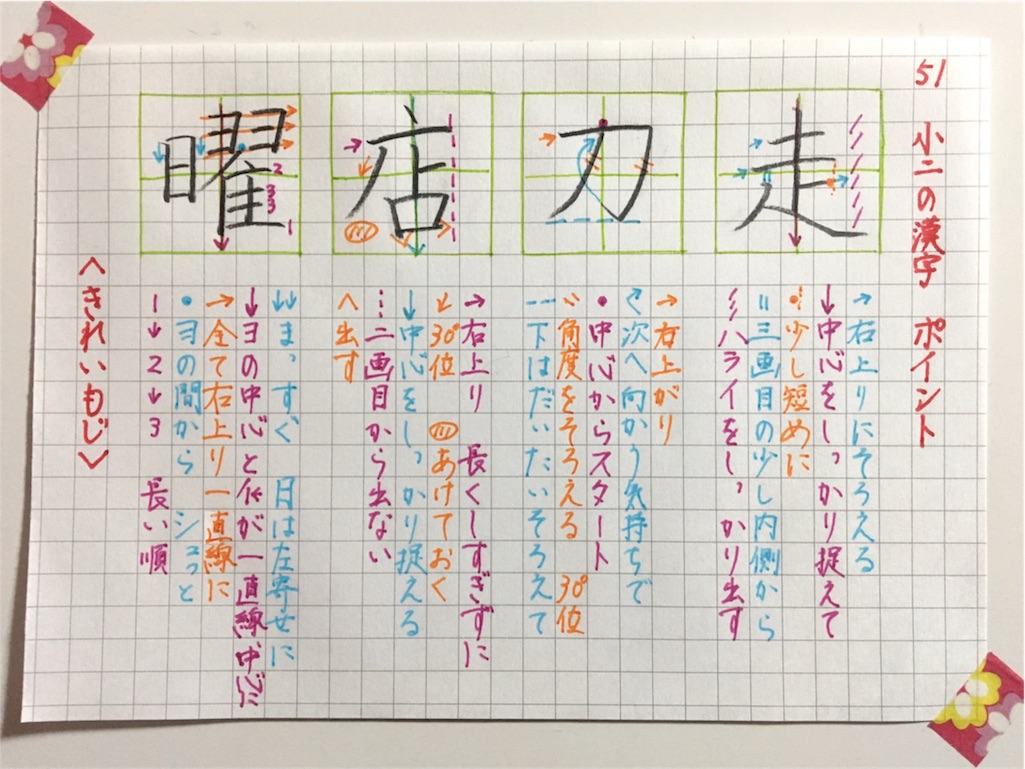 51 小二の漢字 ポイント
走
→右上りにそろえる
↓中心をしっかり捉えて
少し短めに
〃三画目の少し内側から
ハライをしっかり出す
刀
→右上がり
次へ向かう気持ちで
•中心からスタート
角度をそろえる 30°位
---下はだいたいそろえて
店
→右上り 長くしすぎずに
↙30°位 あけておく
↓中心をしっかり捉える
二画目から出ない
へ出す
曜
2
3
3
1
↓↓まっすぐ 日は左寄せに
↓ヨの中心とイが一直線、中心に
→全て右上り 一直線に
•ヨの間から シュッと
1→2→3 長い順
〈きれいもじ〉